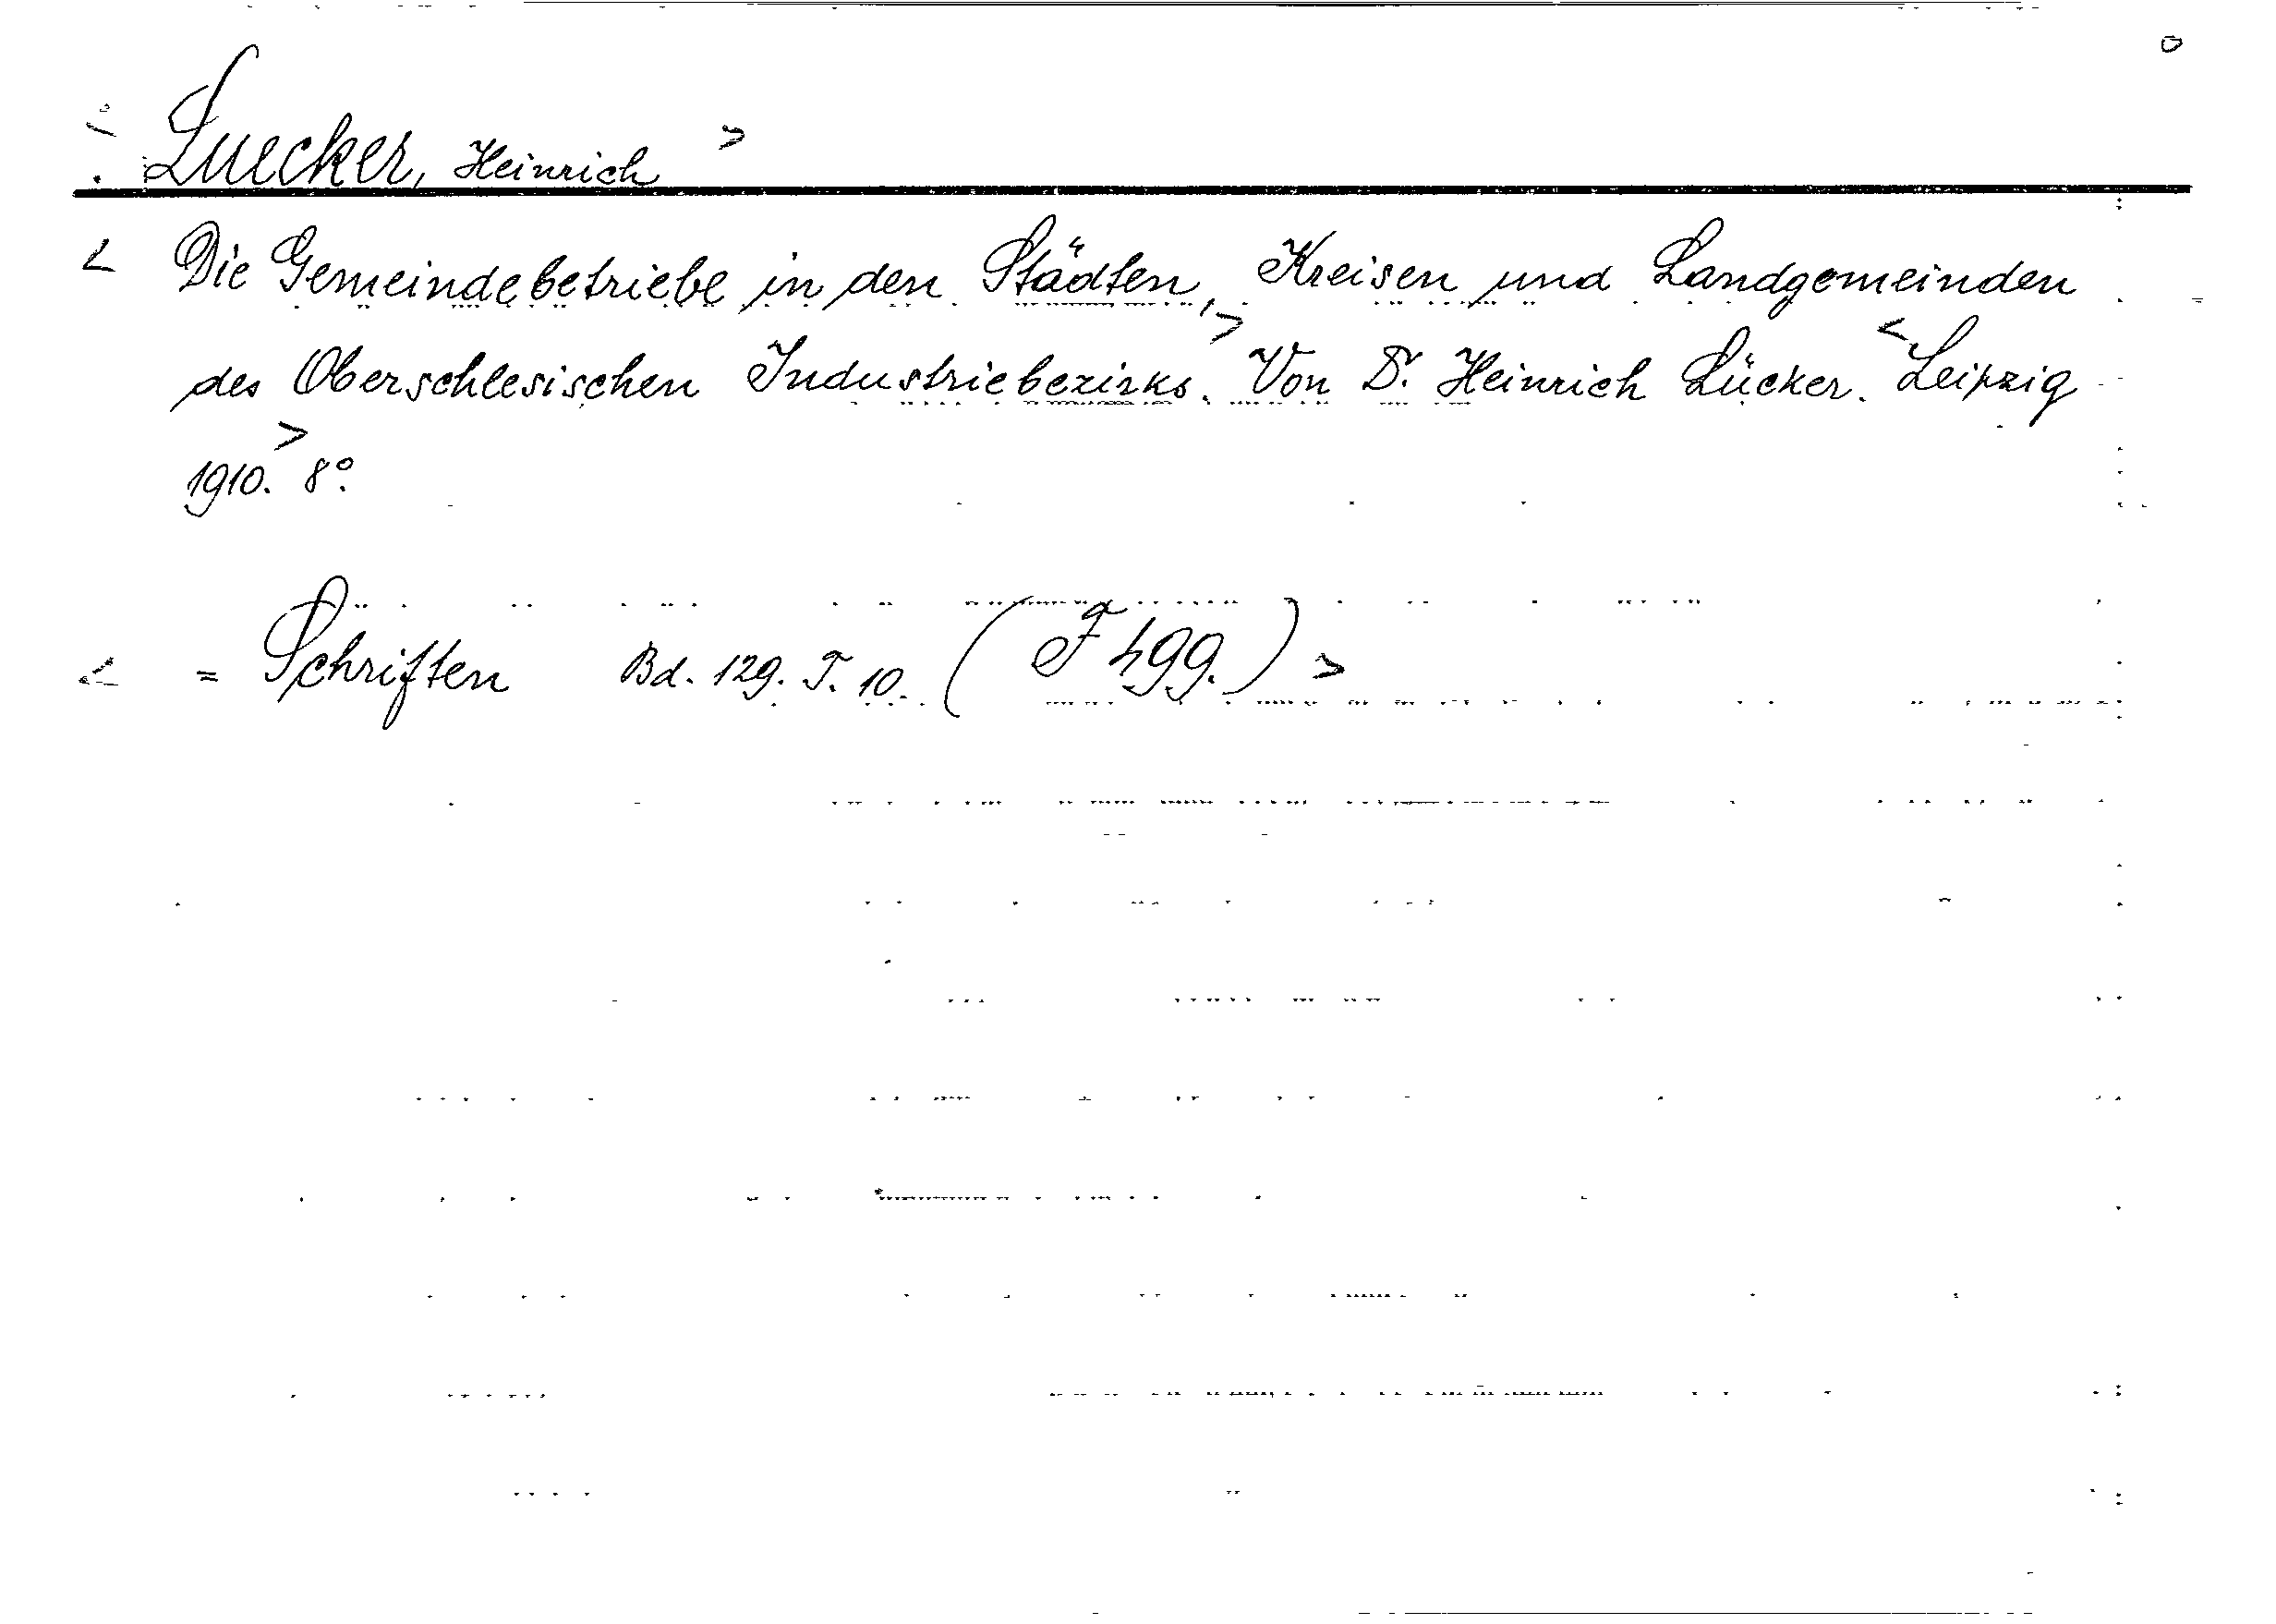 Luecker, Heinrich >
< Die Gemeindebetriebe in den Städten, Kreisen und Landgemeinden
des Oberschlesischen Industriebezirks. > Von Dr. Heinrich Lücker. < Leipzig
1910. > 8°.
< = Schriften Bd. 129. T. 10. (F 499.) >